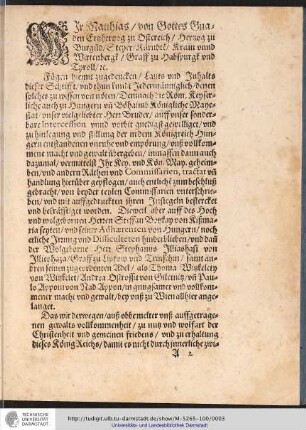 WIr Matthias / von Gottes Gnaden
Ertzhertzog zu Osterreich / Hertzog zu
Burgund / Steyer / Kärndten / Krain unnd
Wirtenbergk / Graff zu Habspurgk und
Tyroll / rc.
Fügen hiemit zugedencken / Lauts und Inhalts
dieser Schrifft / und thun kund Jedermänniglich / denen
solches zu wissen von nöten: Demnach der Röm. Keyserliche
auch zu Hungern uñ Böhaimb Königliche Mayestat /
unser vielgeliebter Herr Bruder / auff unser sonderbare
Intercession unnd vorbit gnedigst gewilliget / und
zu hinlegung und stillung der in dem Königreich Hungern
entstandenen unruhe und empörung / uns vollkommene
macht und gewalt übergeben / inmassen dann auch
dazumal / vermittelst Ihr Key. und Kön. May. geheimben /
und andern Räthen und Commissarien, tractat uñ
handlung hierüber gepflogen / auch entlichẽ zum beschluß
gebracht / von beyder teylen Commissarien unterschrieben /
und mit auffgedruckten ihren Insiegeln bestercket
und bekräfftiget worden. Dieweil aber auff des Hoch
und wolgebornen Herren Steffan Botzkay von Kismaria
seyten / und seiner Adhærenten von Hungern / noch
etzliche Irrung und Difficulteten hinderblieben / und daß
der Wolgeborne Herr Stephanus Illieshasi von
Illieshaza / Graff zu Lyptow und Trentschin / samt andren
seinen zugeordneten von Adel / als Thoma Winkelety
Winkelei / Andrea Ostrosith von Giletnitz / uñ Paulo
Apponi von Nad Appon / in gnugsamer und vollkommener
macht und gewalt / bey uns zu Wien allhier angelanget.
Das wir derwegen / auß obbemelter uns auffgetragenen
gewalts vollkommenheit / zu nutz und wolfart der
Christenheit und gemeinen friedens / und zu erhaltung
dieses König Reichs / damit es nicht durch innerliche
A 2
http://tudigit.ulb.tu-darmstadt.de/show/M-5265-100/0003
Universitäts- und Landesbibliothek Darmstadt
TECHNISCHE
UNIVERSITÄT
DARMSTADT